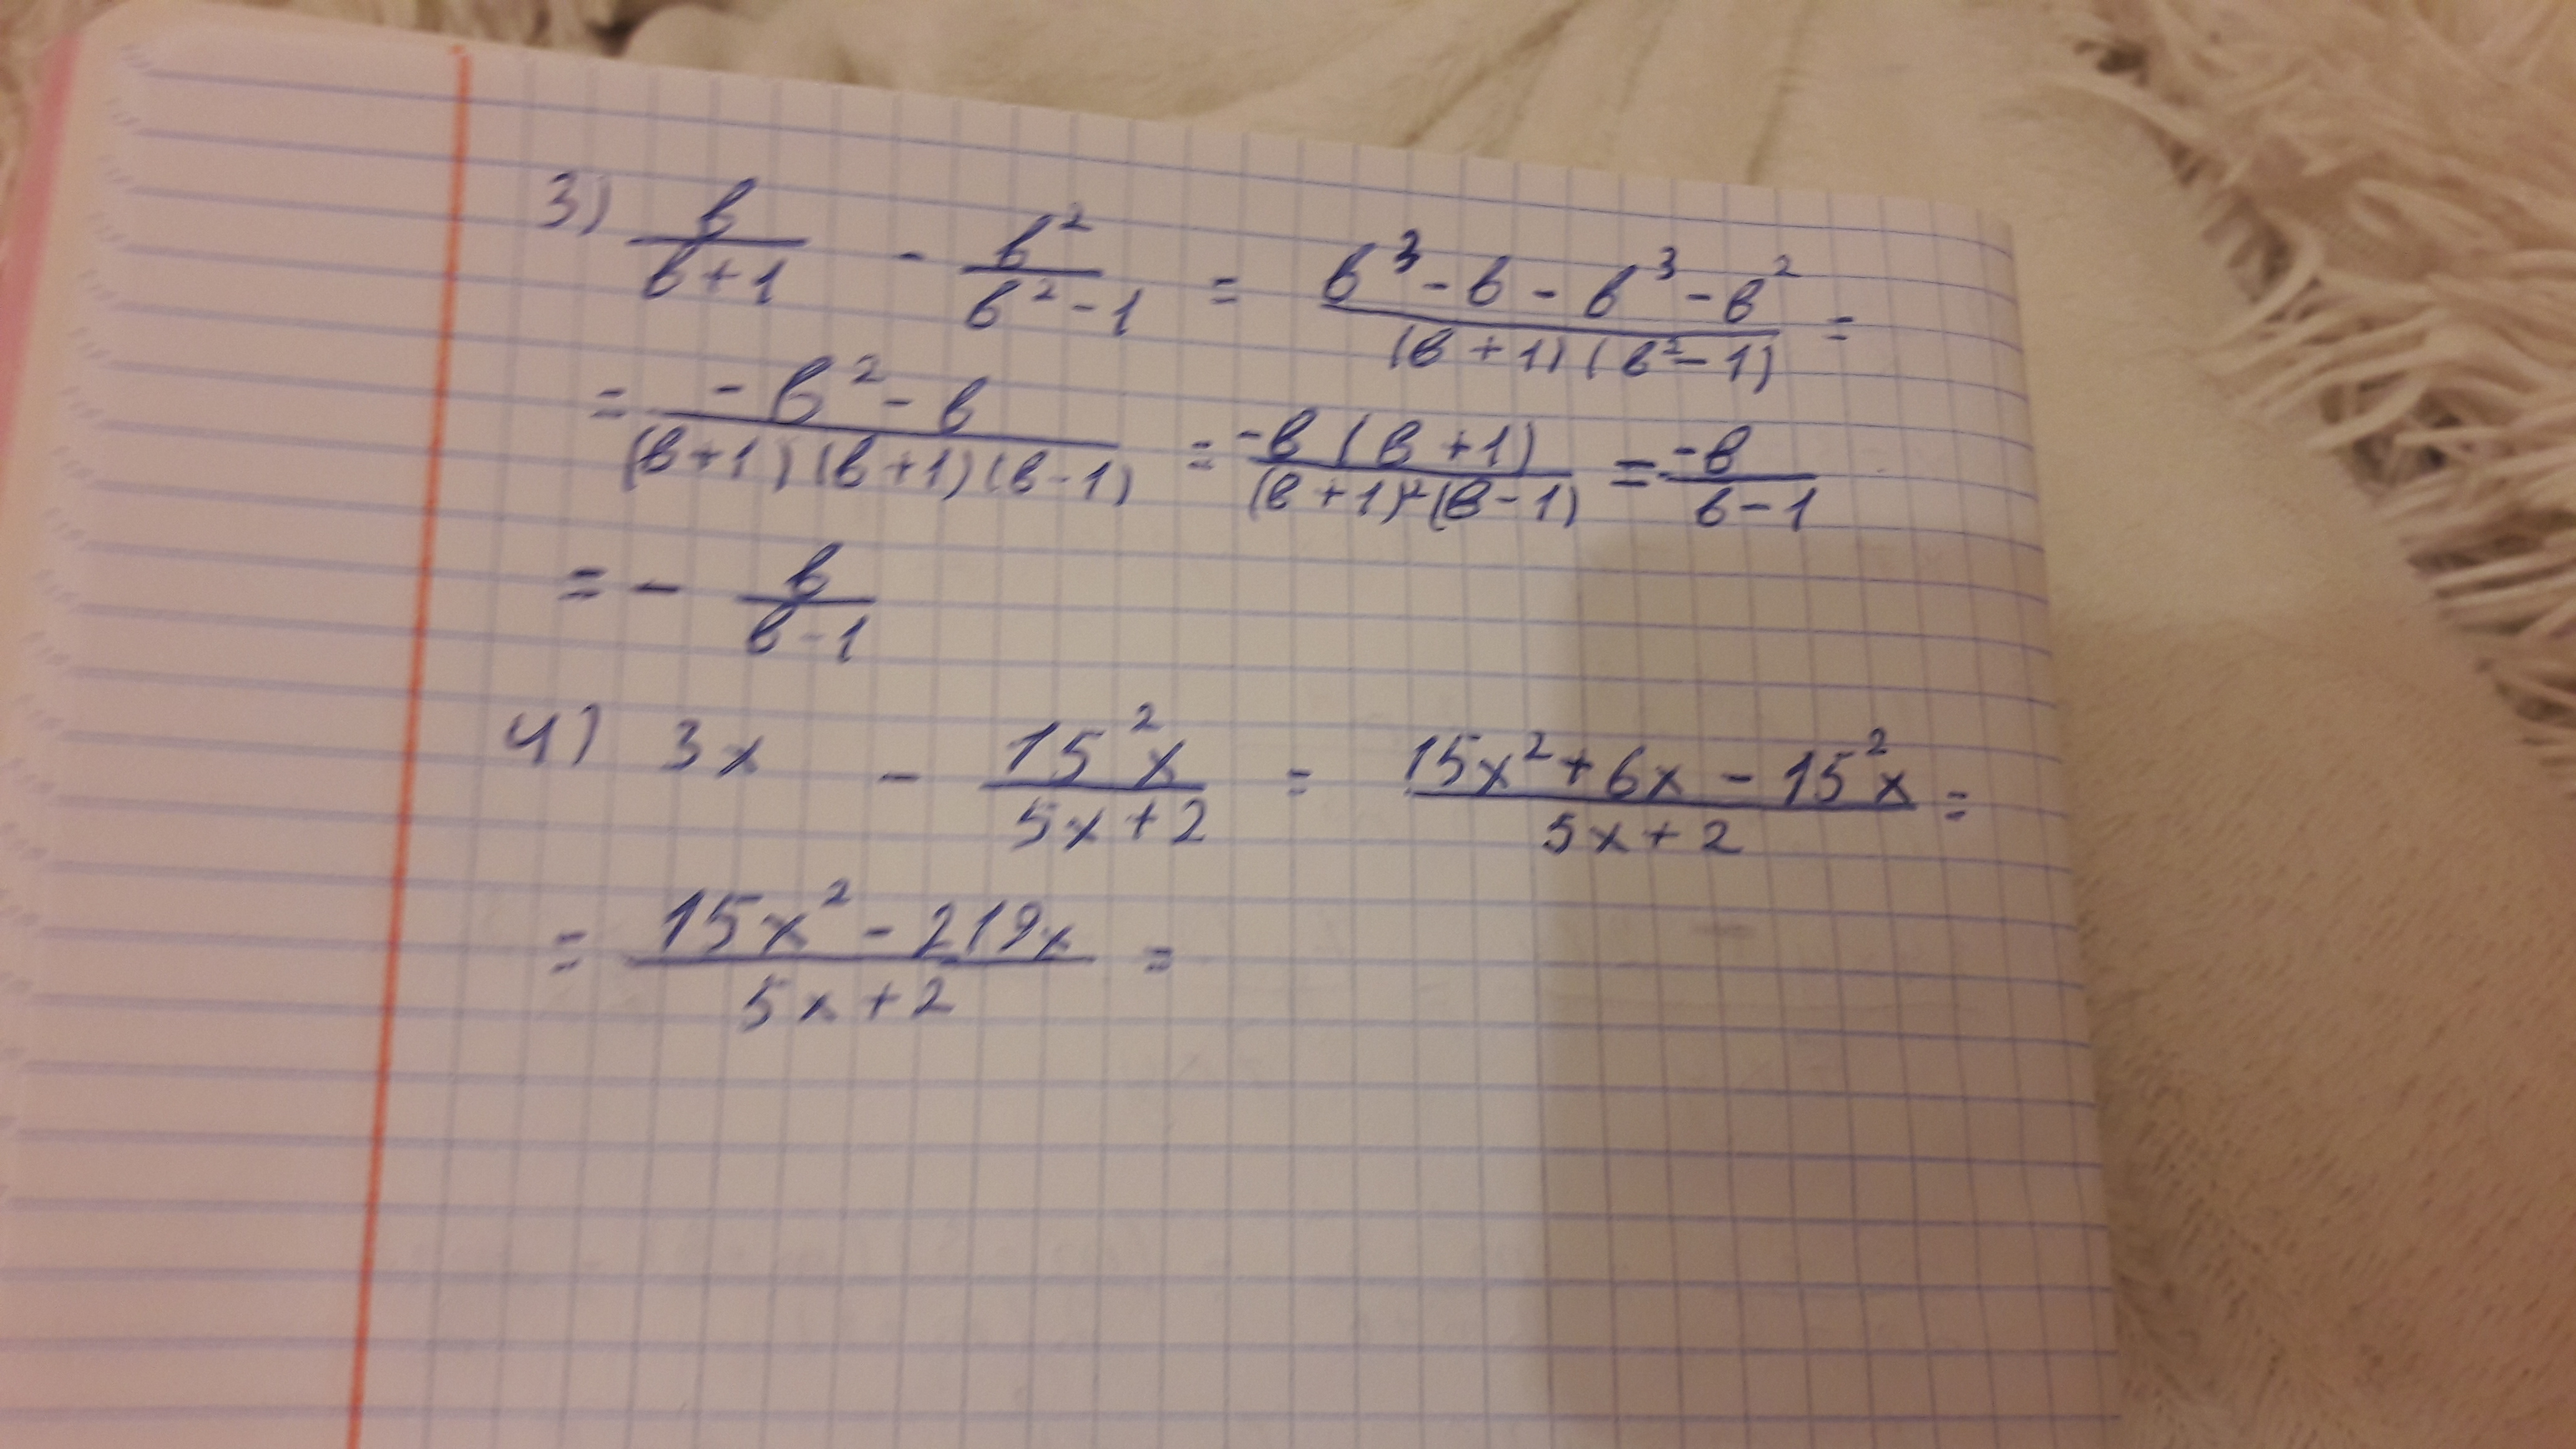 3) в/(в+1) - в²/(в²-1) = (в³-в-в³-в²)/((в+1)(в²-1)) =
= (-в²-в)/((в+1)(в+1)(в-1)) = -в(в+1)/((в+1)²(в-1)) = -в/(в-1)
= - в/(в-1)
4) 3x - 15²x/(5x+2) = (15x²+6x-15²x)/(5x+2) =
= (15x²-219x)/(5x+2) =